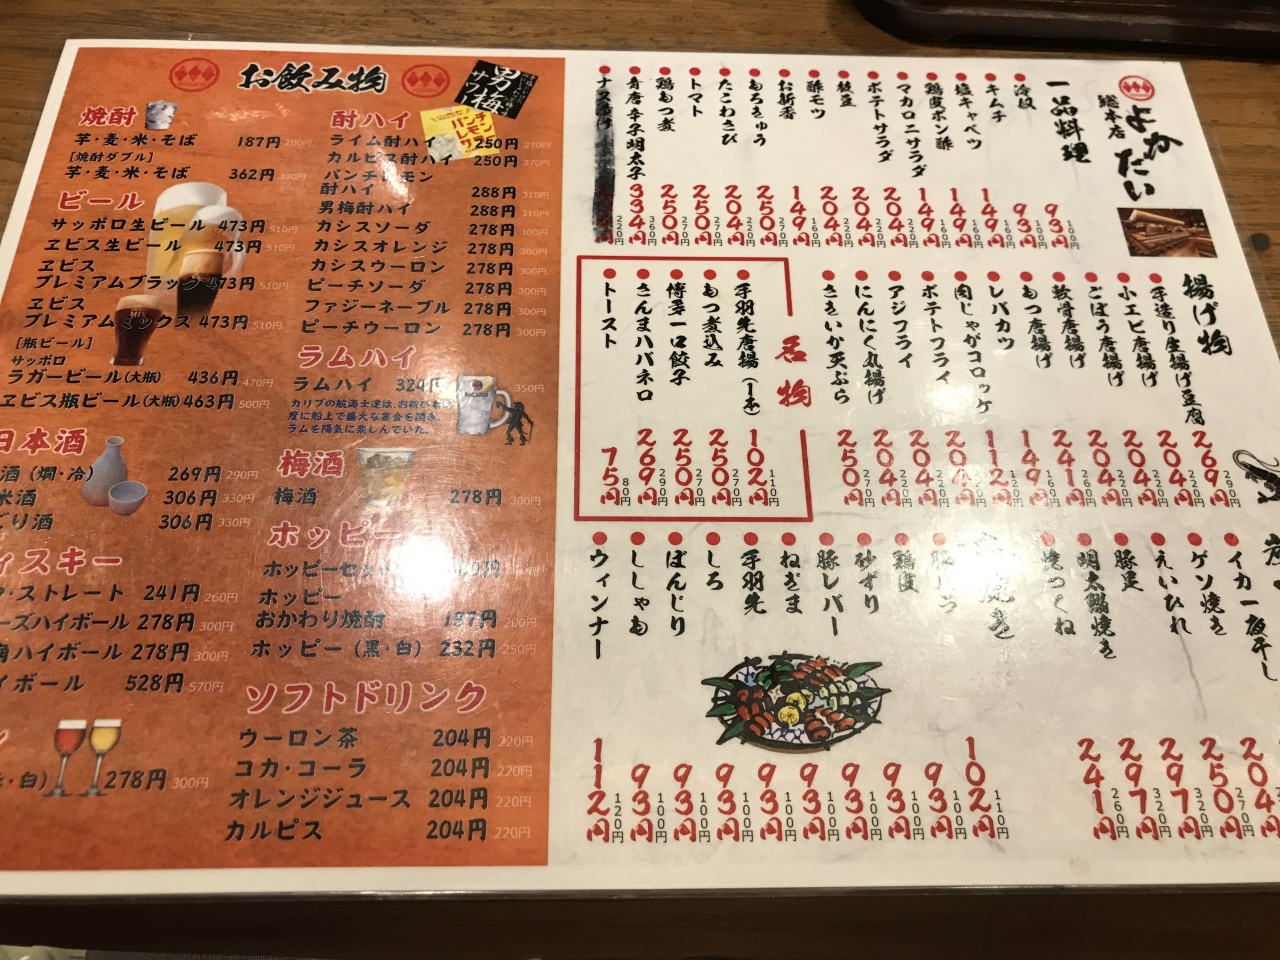 お飲み物
男梅
サワー
パンチ
レモン
サワー
焼酎
芋・麦・米・そば 187円 200円
[焼酎ダブル]
芋・麦・米・そば 362円 390円
ビール
サッポロ生ビール 473円 510円
ヱビス生ビール 473円 510円
ヱビス
プレミアムブラック 473円 510円
ヱビス
プレミアムミックス 473円 510円
[瓶ビール]
サッポロ
ラガービール(大瓶) 436円 470円
ヱビス瓶ビール(大瓶) 463円 500円
日本酒
酒(燗・冷) 269円 290円
米酒 306円 330円
ごり酒 306円 330円
ィスキー
ク・ストレート 241円 260円
ーズハイボール 278円 300円
角ハイボール 278円 300円
イボール 528円 570円
・白) 278円 300円
酎ハイ
ライム酎ハイ 250円 270円
カルピス酎ハイ 250円 270円
パンチレモン
酎ハイ 288円 310円
男梅酎ハイ 288円 310円
カシスソーダ 278円 300円
カシスオレンジ 278円 300円
カシスウーロン 278円 300円
ピーチソーダ 278円 300円
ファジーネーブル 278円 300円
ピーチウーロン 278円 300円
ラムハイ
ラムハイ 324円 350円
カリブの航海士達は、お祝い
度に船上で盛大な宴会を開き、
ラムを陽気に楽しんでいた。
BACARDI
梅酒
梅酒 278円 300円
ホッピー
ホッピーセット
ホッピー
おかわり焼酎 187円 200円
ホッピー(黒・白) 232円 250円
ソフトドリンク
ウーロン茶 204円 220円
コカ・コーラ 204円 220円
オレンジジュース 204円 220円
カルピス 204円 220円
総本店
よかたい
一品料理
冷奴 93円 100円
キムチ 93円 100円
塩キャベツ 149円 160円
鶏皮ポン酢 149円 160円
マカロニサラダ 149円 160円
ポテトサラダ 204円 220円
枝豆 204円 220円
酢モツ 204円 220円
お新香 149円 160円
もろきゅう 250円 270円
たこわさび 204円 220円
トマト 250円 270円
鶏もつ煮 250円 270円
青唐辛子明太子 334円 360円
ナス漬け 220円
揚げ物
手造り生揚げ豆腐 269円 290円
小エビ唐揚げ 204円 220円
ごぼう唐揚げ 204円 220円
軟骨唐揚げ 204円 220円
もつ唐揚げ 241円 260円
レバカツ 149円 160円
肉じゃがコロッケ 112円
ポテトフライ 204円 220円
アジフライ 204円 220円
にんにく丸揚げ 204円 220円
さきいか天ぷら 250円 270円
名物
手羽先唐揚(1本) 102円 110円
もつ煮込み 250円 270円
博多一口餃子 250円 270円
さんまハバネロ 269円 290円
トースト 75円 80円
イカ一夜干し 204
ゲソ焼き 250円 270円
えいひれ 297円 320円
豚足 297円 320円
明太鶏焼き 241円 260円
焼つくね
102円 110円
鶏皮 93円 100円
砂ずり 93円 100円
豚レバー 93円 100円
ねぎま 93円 100円
手羽先 93円 100円
しろ 93円 100円
ぼんじり 93円 100円
ししゃも 93円 100円
ウィンナー 112円 120円